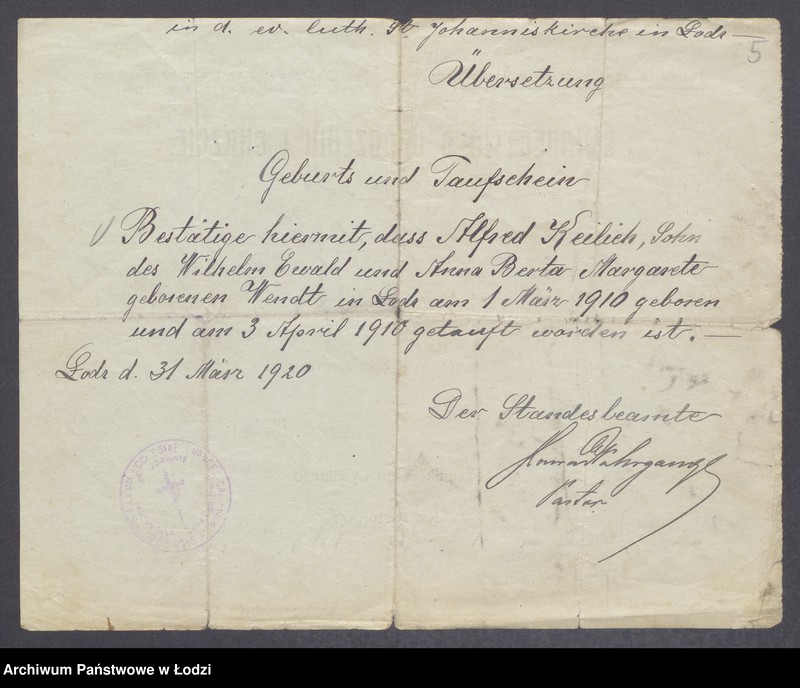 in d. ev. luth. St. Johanniskirche in Lodz —
5
Übersetzung
Geburts und Taufschein
Bestätige hiermit, dass Alfred Keilich, Sohn
des Wilhelm Ewald und Anna Berta Margarete
geborenen Wendt in Lodz am 1 März 1910 geboren
und am 3 April 1910 getauft worden ist. —
Lodz d. 31 März 1920
Der Standesbeamte
Pastor
Archiwum Państwowe w Łodzi